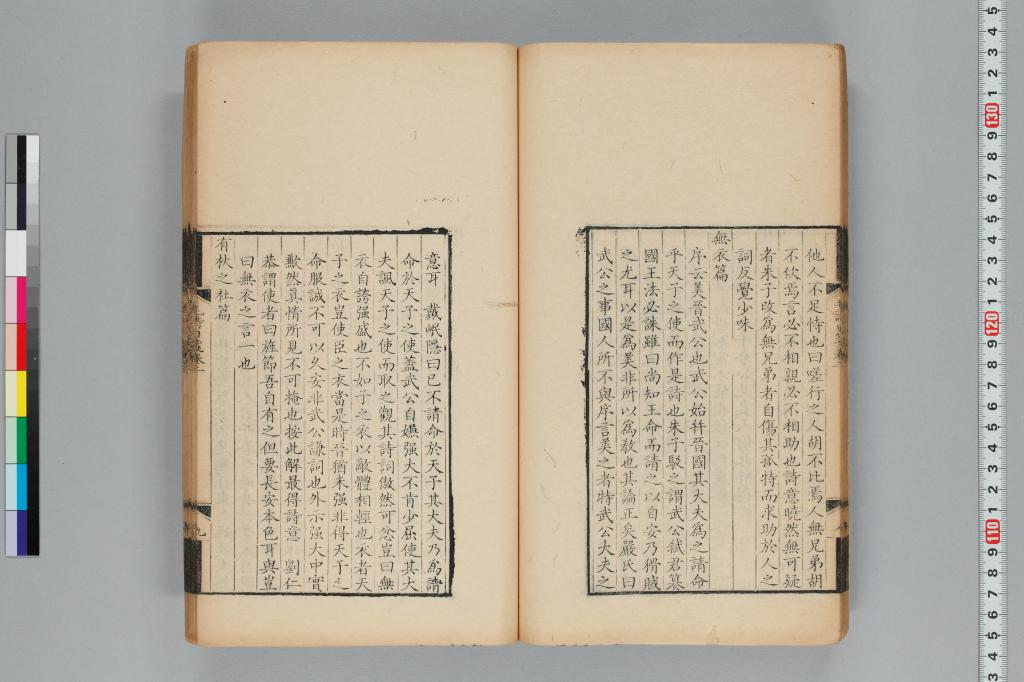 他人不足恃也曰嗟行之人胡不比焉人無兄弟胡
不佽焉言必不相親必不相助也詩意曉然無可疑
者朱子改爲無兄弟者自傷其孤特而求助於人之
詞反覺少味
無衣篇
序云美晉武公也武公始幷晉國其大夫爲之請命
乎天子之使而作是詩也朱子駁之謂武公弑君篡
國王法必誅雖曰尚知王命而請之以自安乃猾賊
之尤耳以是爲美非所以爲教也其論正矣嚴氏曰
武公之事國人所不與序言美之者特武公大夫之
意耳 戴岷隱曰已不請命於天子其大夫乃爲請
命於天子之使蓋武公自嫵强大不肯少屈使其大
夫諷天子之使而取之觀其詩詞傲然可忿豈曰無
衣自誇强盛也不如子之衣以敵體相輕也衣者天
子之衣豈使臣之衣當是時晉猶未强非得天子之
命服誠不可以久安非武公謙詞也外示强大中實
歉然真情所見不可掩也按此解最得詩意 劉仁
恭謂使者曰旌節吾自有之但要長安本色耳與豈
曰無衣之言一也
有杕之杜篇
九
130
120
110